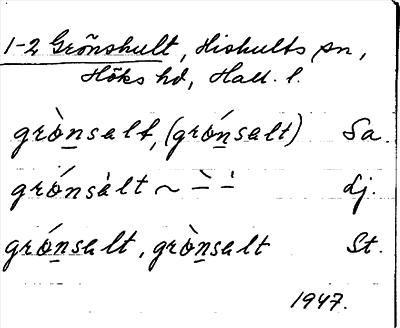 1-2 Grönshult, Hishults sn,
Höks hd, Hall. l.
grò̱nsalt, (gró̱nsalt) Sa.
grónsàlt ~ ∸̀ ∸ Lj.
gró̱nsalt, grò̱nsalt St.
1947.